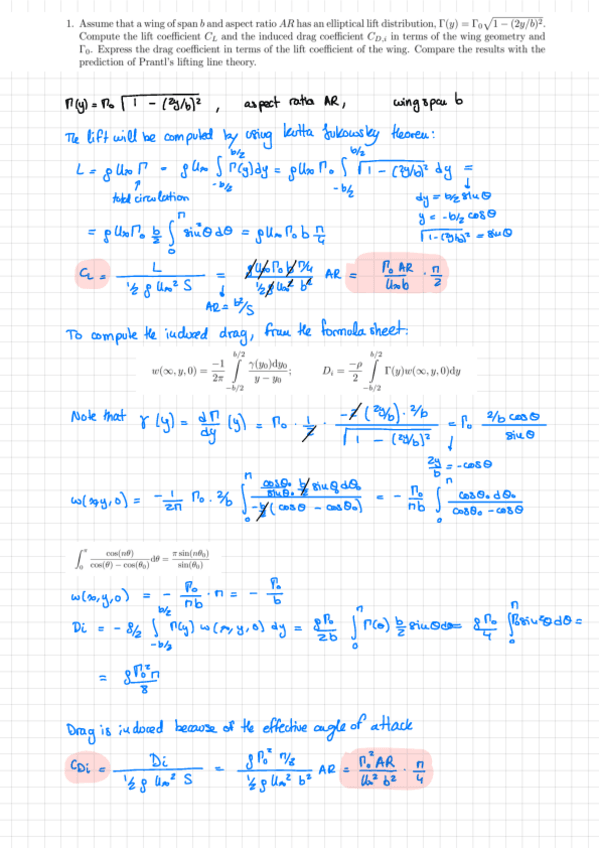 1. Assume that a wing of span b and aspect ratio AR has an elliptical lift distribution, Γ(y) = Γ₀√(1 − (2y/b)²).
Compute the lift coefficient C_L and the induced drag coefficient C_{D,i} in terms of the wing geometry and
Γ₀. Express the drag coefficient in terms of the lift coefficient of the wing. Compare the results with the
prediction of Prantl's lifting line theory.
Γ(y) = Γ₀ √(1 − (2y/b)²) , aspect ratio AR, wingspan b
The lift will be computed by using kutta Jukowsky theorem:
L = ρ U∞ Γ = ρ U∞ ∫_{-b/2}^{b/2} Γ(y)dy = ρ U∞ Γ₀ ∫_{-b/2}^{b/2} √(1 − (2y/b)²) dy =
total circulation
dy = b/2 sinθ
y = -b/2 cosθ
√(1-(2y/b)²) = sinθ
= ρ U∞ Γ₀ b/2 ∫_0^π sin²θ dθ = ρ U∞ Γ₀ b π/4
C_L = L / (½ ρ U∞² S) = (ρ U∞ Γ₀ b π/4) / (½ ρ U∞² b²) AR = (Γ₀ AR / U∞ b) · π/2
AR = b²/S
To compute the induced drag, from the formula sheet:
w(∞, y, 0) = −1/2π ∫_{−b/2}^{b/2} γ(y₀)dy₀ / (y − y₀); D_i = −ρ/2 ∫_{−b/2}^{b/2} Γ(y)w(∞, y, 0)dy
Note that γ(y) = dΓ/dy (y) = Γ₀ · 1/2 · −2 (2y/b) · 2/b / √(1 − (2y/b)²) = Γ₀ 2/b cosθ / sinθ
2y/b = -cosθ
w(∞,y,0) = − 1/2π Γ₀ · 2/b ∫_0^π (cosθ₀/sinθ₀ b/2 sinθ₀ dθ₀) / (−b/2 (cosθ − cosθ₀)) = − Γ₀/πb ∫_0^π cosθ₀ dθ₀ / (cosθ₀ − cosθ)
∫_0^π cos(nθ) / (cos(θ) − cos(θ₀)) dθ = π sin(nθ₀) / sin(θ₀)
w(∞,y,0) = − Γ₀/πb · π = − Γ₀/b
Di = − ρ/2 ∫_{-b/2}^{b/2} Γ(y) w(∞,y,0) dy = ρΓ₀/2b ∫_0^π Γ(θ) b/2 sinθ dθ = ρ Γ₀/4 ∫_0^π Γ₀ sin²θ dθ =
= ρΓ₀² π / 8
Drag is induced because of the effective angle of attack
C_Di = Di / (½ ρ U∞² S) = (ρ Γ₀² π/8) / (½ ρ U∞² b²) AR = (Γ₀² AR / U∞² b²) · π/4